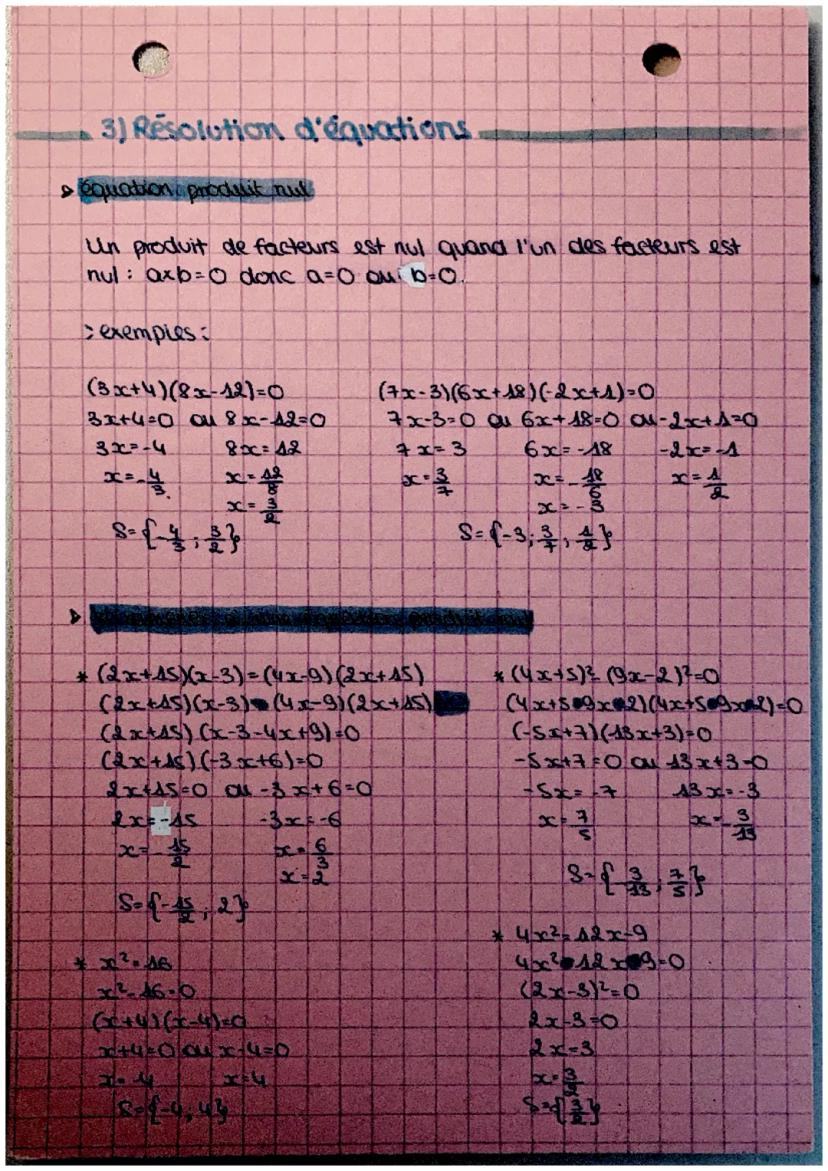 3) Résolution d'équations
équation produit nul
Un produit de facteurs est nul quand l'un des facteurs est
nul : a×b=0 donc a=0 ou b=0.
> exemples :
(3x+4)(8x-12)=0
3x+4=0 ou 8x-12=0
3x=-4 8x=12
x=-4/3 x=12/8
x=3/2
S={-4/3 ; 3/2}
(7x-3)(6x+18)(-2x+1)=0
7x-3=0 ou 6x+18=0 ou -2x+1=0
7x=3 6x=-18 -2x=-1
x=3/7 x=-18/6 x=1/2
x=-3
S={-3 ; 3/7 ; 1/2}
équation produit nul
* (2x+15)(x-3)=(4x-9)(2x+15)
(2x+15)(x-3) (4x-9)(2x+15)
(2x+15)(x-3-4x+9)=0
(2x+15)(-3x+6)=0
2x+15=0 ou -3x+6=0
2x=-15 -3x=-6
x=-15/2 x=6/3
x=2
S={-15/2 ; 2}
* x²=16
x²-16=0
(x+4)(x-4)=0
x+4=0 ou x-4=0
x=-4 x=4
S={-4 ; 4}
* (4x+5)²-(9x-2)²=0
(4x+5 9x 2)(4x+5 9x 2)=0
(-5x+7)(13x+3)=0
-5x+7=0 ou 13x+3=0
-5x=-7 13x=-3
x=7/5 x=-3/13
S={-3/13 ; 7/5}
* 4x²=12x-9
4x² 12x 9=0
(2x-3)²=0
2x-3=0
2x=3
x=3/2
S={3/2}